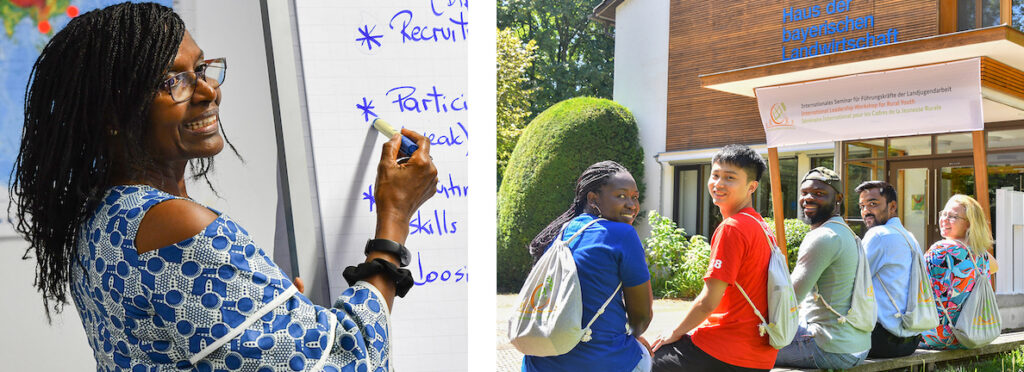 * Recruit
* Partici
eak)
* 
skills
loosi
Haus der
bayerischen
Landwirtschaft
Internationales Seminar für Führungskräfte der Landjugendarbeit
International Leadership Workshop for Rural Youth
Séminaire International pour les Cadres de la Jeunesse Rurale